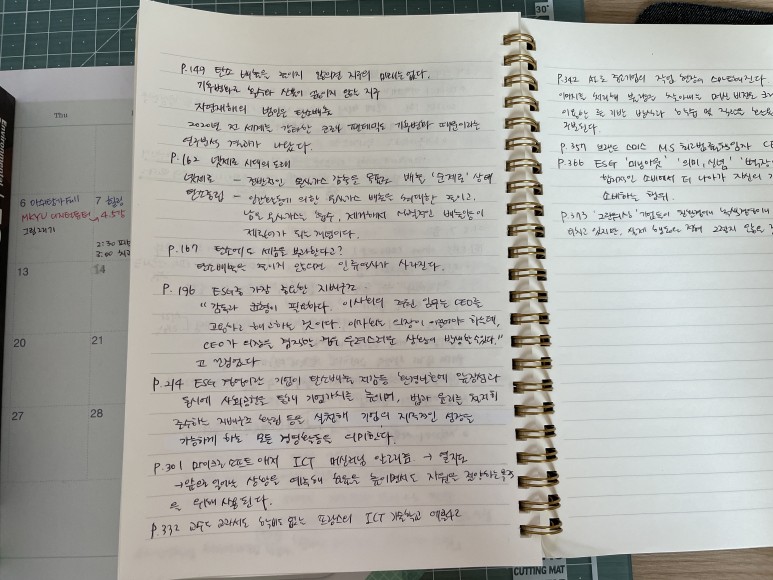 Thu
Environmental
6
7 힐링
MKYU
4.5강
그림그리기
2:30
2:00
13
14
20
21
27
28
P.149 탄소 배출은 줄이지 않으면 지구의 미래는 없다.
기후변화로 홍수와 산불이 끊이지 않는 지구
자연재해의 범인은 탄소배출
2020년 전 세계를 강타한 코로나 팬데믹도 기후변화 때문이라는
연구분석 결과가 나왔다.
P.162 넷제로 시대의 도래
넷제로 - 전반적인 온실가스 감축은 배출 '순제로' 상태
탄소중립 - 인간활동에 의한 온실가스 배출은 최대한 줄이고.
남은 온실가스는 흡수, 제거해서 실질적인 배출량이
제로(0)가 되는 개념이다.
P.167 탄소에도 세금을 부과한다고?
탄소배출을 줄이지 않으면 인류역사가 사라진다.
P.196 ESG중 가장 중요한 지배구조
"감독과 균형이 필요하다. 이사회의 주된 임무는 CEO를
고용하고 해고하는 것이다. 이사회 의장이 이끌어야 하는데,
CEO가 의장을 겸직할 경우 우려스러운 상황이 발생할 수 있다."
고 설명했다
P.214 ESG 경영이란 기업이 탄소배출 저감등 환경보호에 앞장섬과
동시에 사회공헌을 통해 기업가치를 높이며, 법과 윤리를 철저히
준수하는 지배구조 확립 등을 실천해 기업의 지속적인 성장을
가능하게 하는 모든 경영활동을 의미한다.
P.301 마이크로소프트 애저 ICT 머신러닝 알고리즘 → 열지도
→ 앞으로 일어날 상황을 예측해 효율을 높이면서도 자원은 절약하는 목적
을 위해 사용된다.
P.332 교수도 교과서도 학비도 없는 프랑스의 ICT 기술학교 에꼴42
P.342 AI로 중소기업의 작업 현장이 스마트해진다
이미지를 처리해 불량을 찾아내는 머신 비전
P.357 브래드 스미스 MS 최고법률책임자
P.366 ESG '미닝아웃' '의미, 신념'
합리적인 소비에서 더 나아가 자신의
소비하는 행위.
P.373 '그린워싱' 기업들이 친환경에
CUTTING MAT
30°